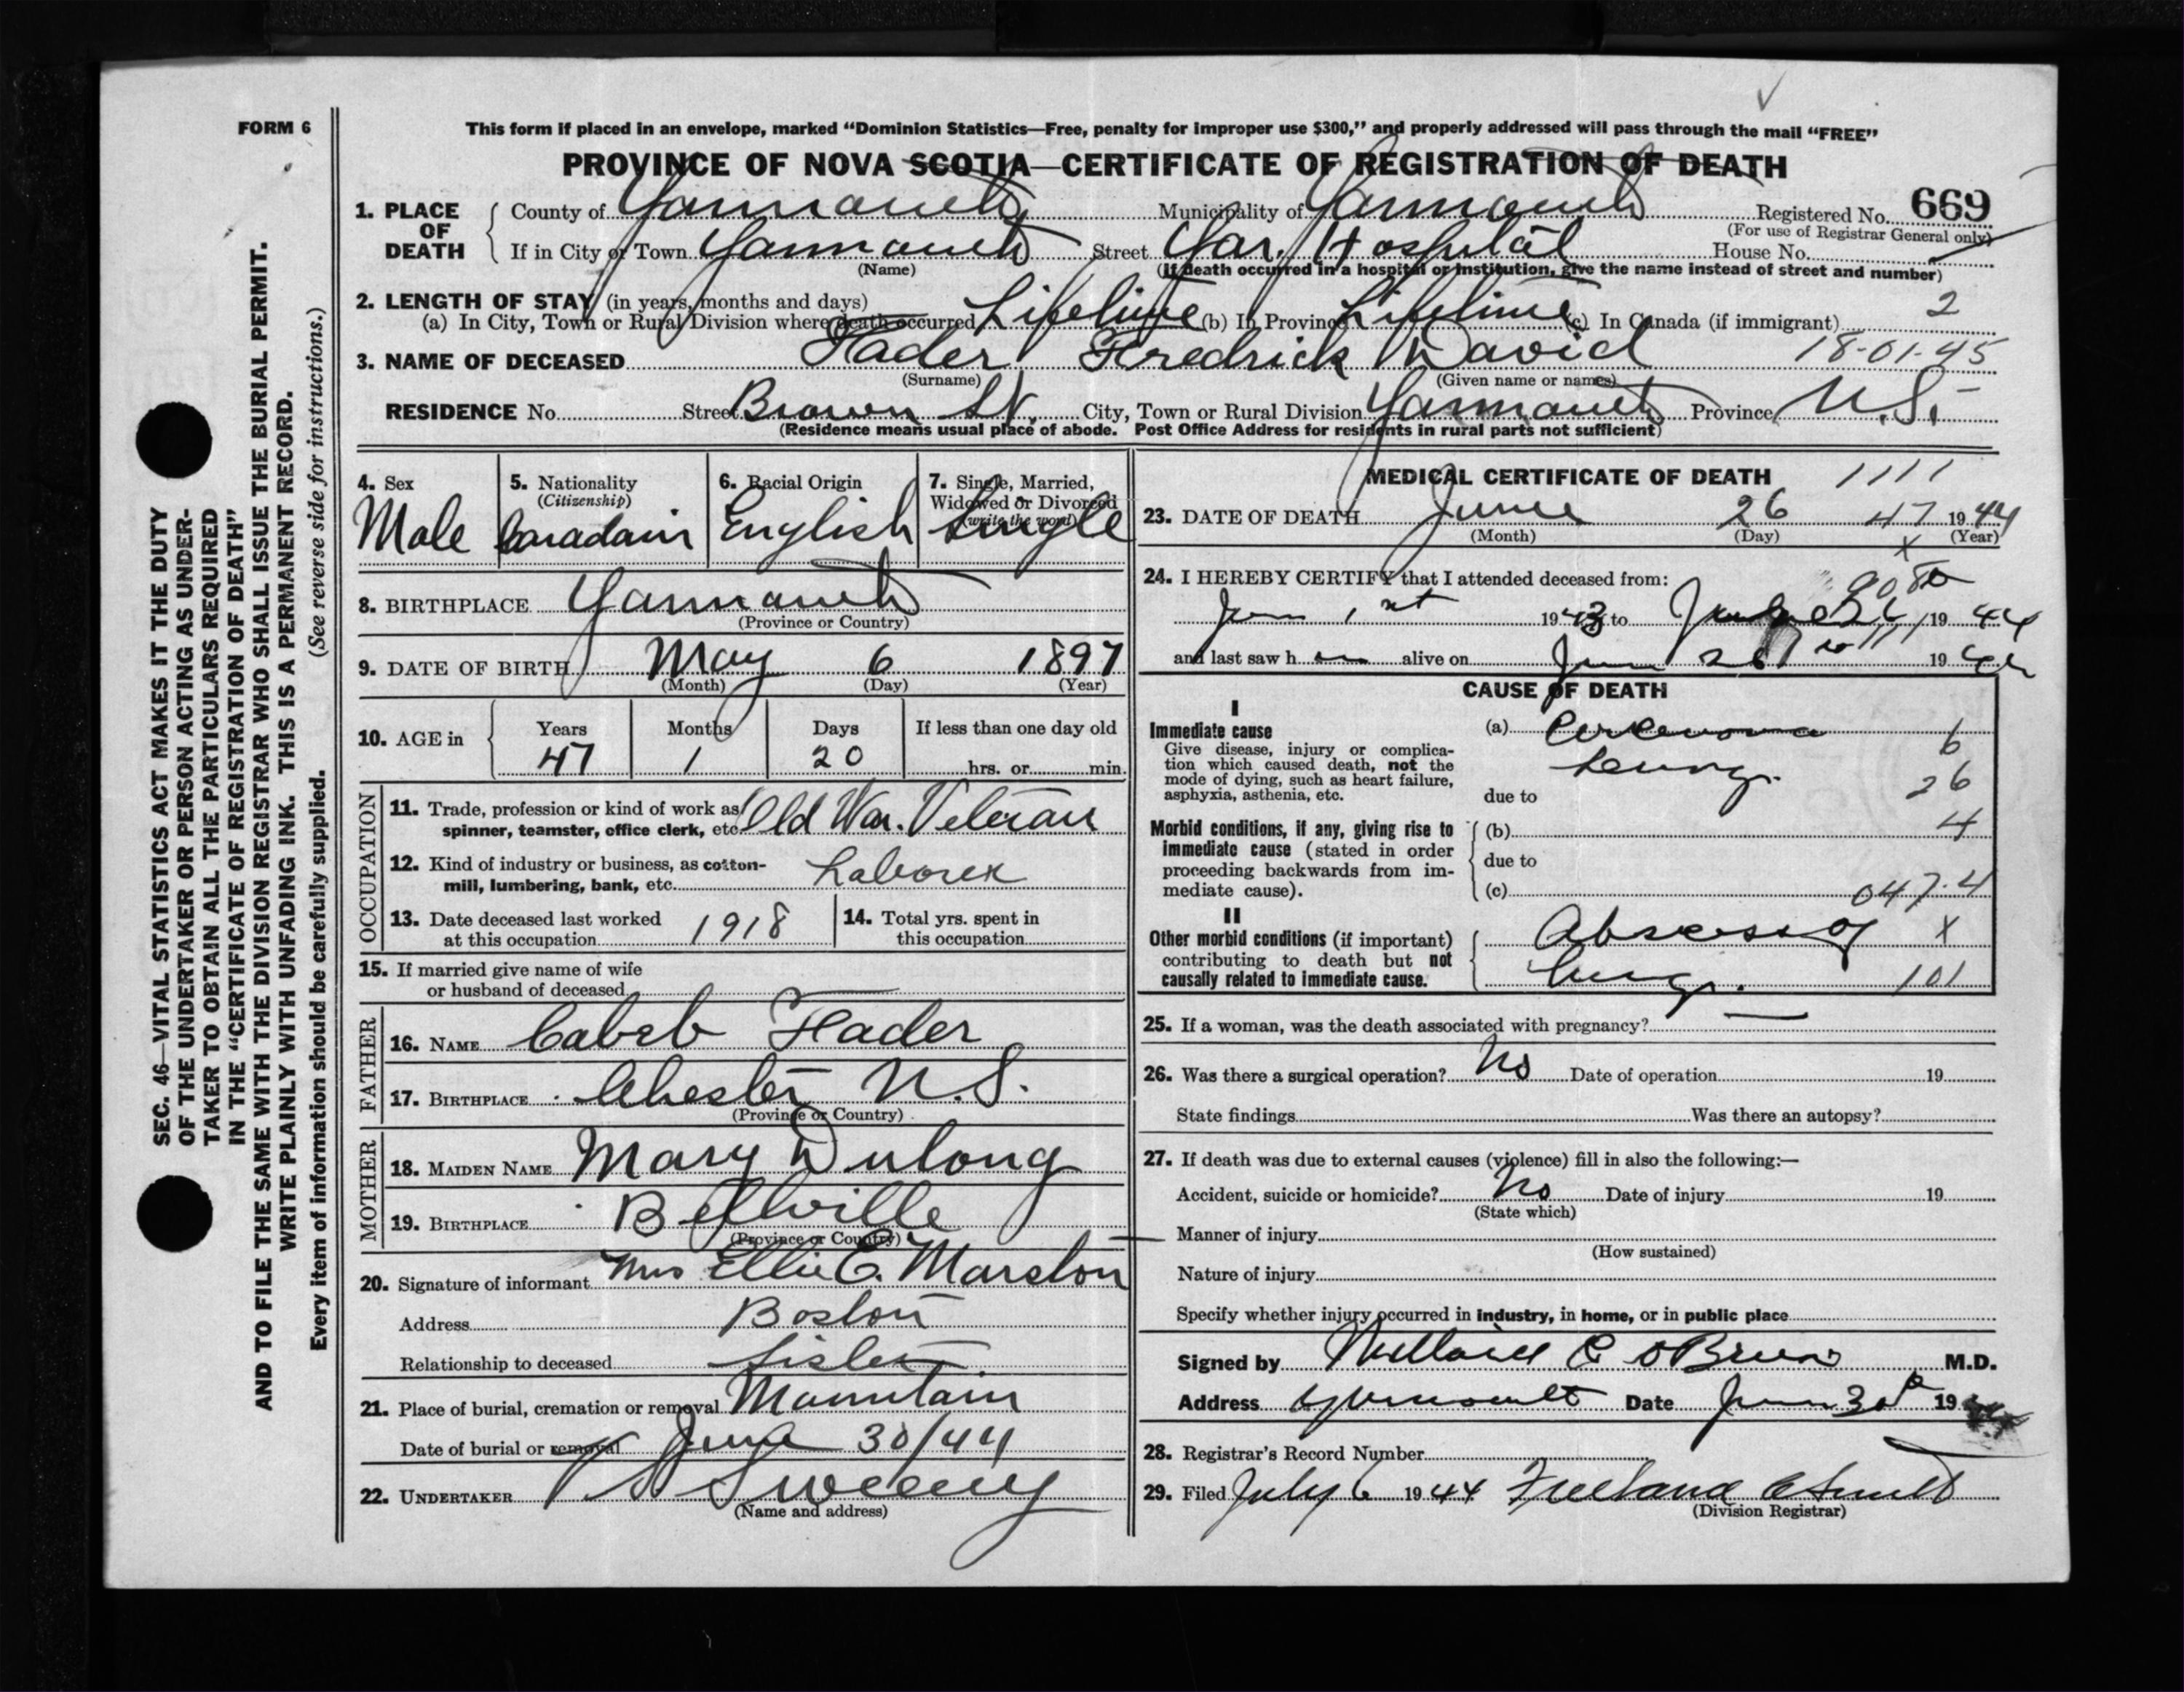 FORM 6
This form if placed in an envelope, marked “Dominion Statistics—Free, penalty for improper use $300,” and properly addressed will pass through the mail “FREE”
PROVINCE OF NOVA SCOTIA—CERTIFICATE OF REGISTRATION OF DEATH
1. PLACE OF DEATH County of Yarmouth Municipality of Yarmouth Registered No. 669
(For use of Registrar General only)
If in City or Town Yarmouth Street Yar. Hospital House No.
(Name) (If death occurred in a hospital or institution, give the name instead of street and number)
2. LENGTH OF STAY (in years, months and days)
(a) In City, Town or Rural Division where death occurred Lifetime (b) In Province Lifetime (c) In Canada (if immigrant) 2
3. NAME OF DECEASED Hader Fredrick David 18-01-45
(Surname) (Given name or names)
RESIDENCE No. Street Brown St. City, Town or Rural Division Yarmouth Province N.S.
(Residence means usual place of abode. Post Office Address for residents in rural parts not sufficient)
4. Sex Male
5. Nationality (Citizenship) Canadain
6. Racial Origin English
7. Single, Married, Widowed or Divorced (write the word) Single
8. BIRTHPLACE Yarmouth
(Province or Country)
9. DATE OF BIRTH May 6 1897
(Month) (Day) (Year)
10. AGE in Years 47 Months 1 Days 20 If less than one day old hrs. or min.
OCCUPATION
11. Trade, profession or kind of work as spinner, teamster, office clerk, etc. Old War. Veteran
12. Kind of industry or business, as cotton-mill, lumbering, bank, etc. Laborer
13. Date deceased last worked at this occupation 1918
14. Total yrs. spent in this occupation
15. If married give name of wife or husband of deceased
FATHER
16. NAME Cabeb Hader
17. BIRTHPLACE Chester N.S.
(Province or Country)
MOTHER
18. MAIDEN NAME Mary Dulong
19. BIRTHPLACE Bellville
(Province or Country)
20. Signature of informant Mrs Ellie E. Marston
Address Boston
Relationship to deceased Sister
21. Place of burial, cremation or removal Mountain
Date of burial or removal June 30/44
22. UNDERTAKER V S Sweeny
(Name and address)
MEDICAL CERTIFICATE OF DEATH 1111
23. DATE OF DEATH June 26 47 1944
(Month) (Day) (Year)
x
24. I HEREBY CERTIFY that I attended deceased from:
Jan 1st 1943 to June 26 1944
and last saw h alive on Jun 26 1944
CAUSE OF DEATH
I
Immediate cause
Give disease, injury or complication which caused death, not the mode of dying, such as heart failure, asphyxia, asthenia, etc.
(a) Carcinoma 6
Lung. 26
due to
Morbid conditions, if any, giving rise to immediate cause (stated in order proceeding backwards from immediate cause).
(b) 4
due to
(c) 047.4
II
Other morbid conditions (if important) contributing to death but not causally related to immediate cause.
Abscess of x
Lung. 101
25. If a woman, was the death associated with pregnancy? —
26. Was there a surgical operation? No Date of operation 19
State findings Was there an autopsy?
27. If death was due to external causes (violence) fill in also the following:—
Accident, suicide or homicide? No Date of injury 19
(State which)
Manner of injury
(How sustained)
Nature of injury
Specify whether injury occurred in industry, in home, or in public place
Signed by C O'Brien M.D.
Address Yarmouth Date June 30 19
28. Registrar's Record Number
29. Filed July 6 1944 Freeland
(Division Registrar)
SEC. 46—VITAL STATISTICS ACT MAKES IT THE DUTY
OF THE UNDERTAKER OR PERSON ACTING AS UNDER-
TAKER TO OBTAIN ALL THE PARTICULARS REQUIRED
IN THE “CERTIFICATE OF REGISTRATION OF DEATH”
AND TO FILE THE SAME WITH THE DIVISION REGISTRAR WHO SHALL ISSUE THE BURIAL PERMIT.
WRITE PLAINLY WITH UNFADING INK. THIS IS A PERMANENT RECORD.
Every item of information should be carefully supplied. (See reverse side for instructions.)